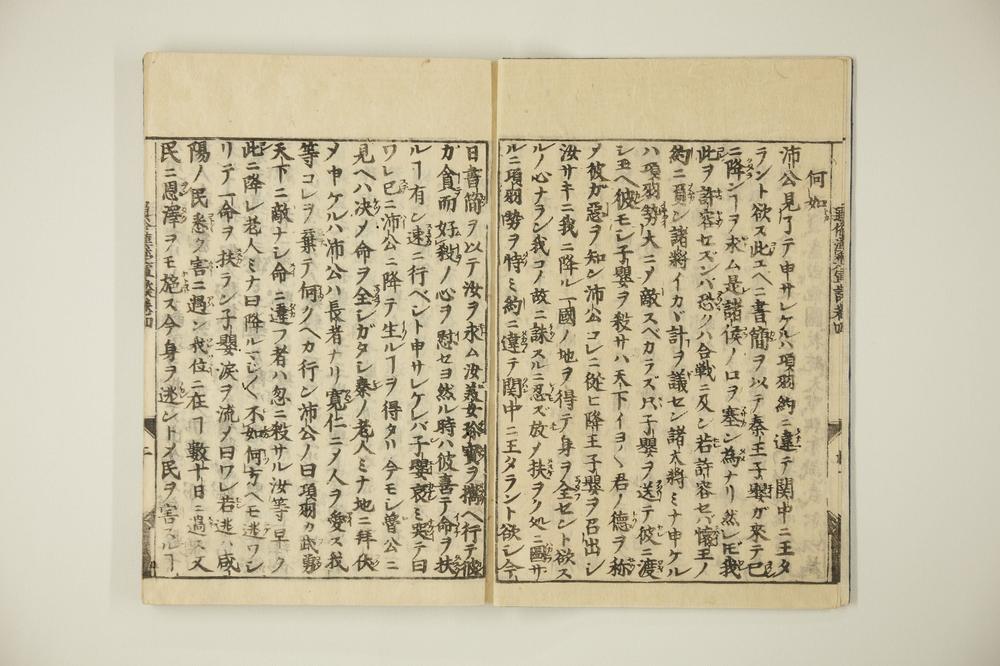 何如
沛公見了テ申サレケルハ項羽約ニ違テ関中ニ王タ
ラント欲ス此ユヘニ書簡ヲ以テ秦王子嬰ガ來テ已
ニ降シヿヲ求ム是諸侯ノ口ヲ塞ン為ナリ然レ𪜈我
此ヲ許容セズンバ恐クハ合戦ニ及ン若許容セバ懐王ノ
約ニ負ン諸将イカヾ計ヲ議セン諸大將ミナ申ケル
ハ項羽勢大ニメ敵スベカラズ只子嬰ヲ送テ彼ニ渡
シ玉ヘ彼モシ子嬰ヲ殺サハ天下イヨ〱君ノ德ヲ称
メ彼ガ惡ヲ知ン沛公コレニ從ヒ降王子嬰ヲ召出シ
汝サキニ我ニ降ル一國ノ地ヲ得テ身ヲ全セント欲ス
ルノ心ナラン我コノ故ニ誅スルニ忍ズ放メ扶ヲク処ニ圖サ
ルニ項羽勢ヲ恃ミ約ニ違テ関中ニ王タラント欲シ今
日書簡ヲ以テ汝ヲ求ム汝美女珍寶ヲ携ヘ行テ彼
カ貪而好殺ノ心ヲ慰セヨ然ル時ハ彼喜テ命ヲ扶
ルヿ有ン速ニ行ベント申サレケレバ子嬰哀ミ哭テ曰
ワレ已ニ沛公ニ降テ生ルヿヲ得タリ今モシ魯公ニ
見ヘハ决メ命ヲ全シガタシ秦ノ老人ミナ地ニ拜伏
メ申ケルハ沛公ハ長者ナリ寛仁ニメ人ヲ愛ス我
等コレヲ棄テ何クヘカ行ン沛公ノ曰項羽カ武勇
天下ニ敵ナシ命ニ違フ者ハ忽ニ殺サル汝等早ク
此ニ降レ老人ミナ曰降ルヿ不如何方ヘモ迯ワシ
リテ一命ヲ扶ラン子嬰涙ヲ流メ曰ワレ若迯ハ咸
陽ノ民悉ク害ニ遇ン我位ニ在ヿ數十日ニ過ス又
民ニ恩澤ヲモ施ス今身ヲ迯ントメ民ヲ害スルヿ